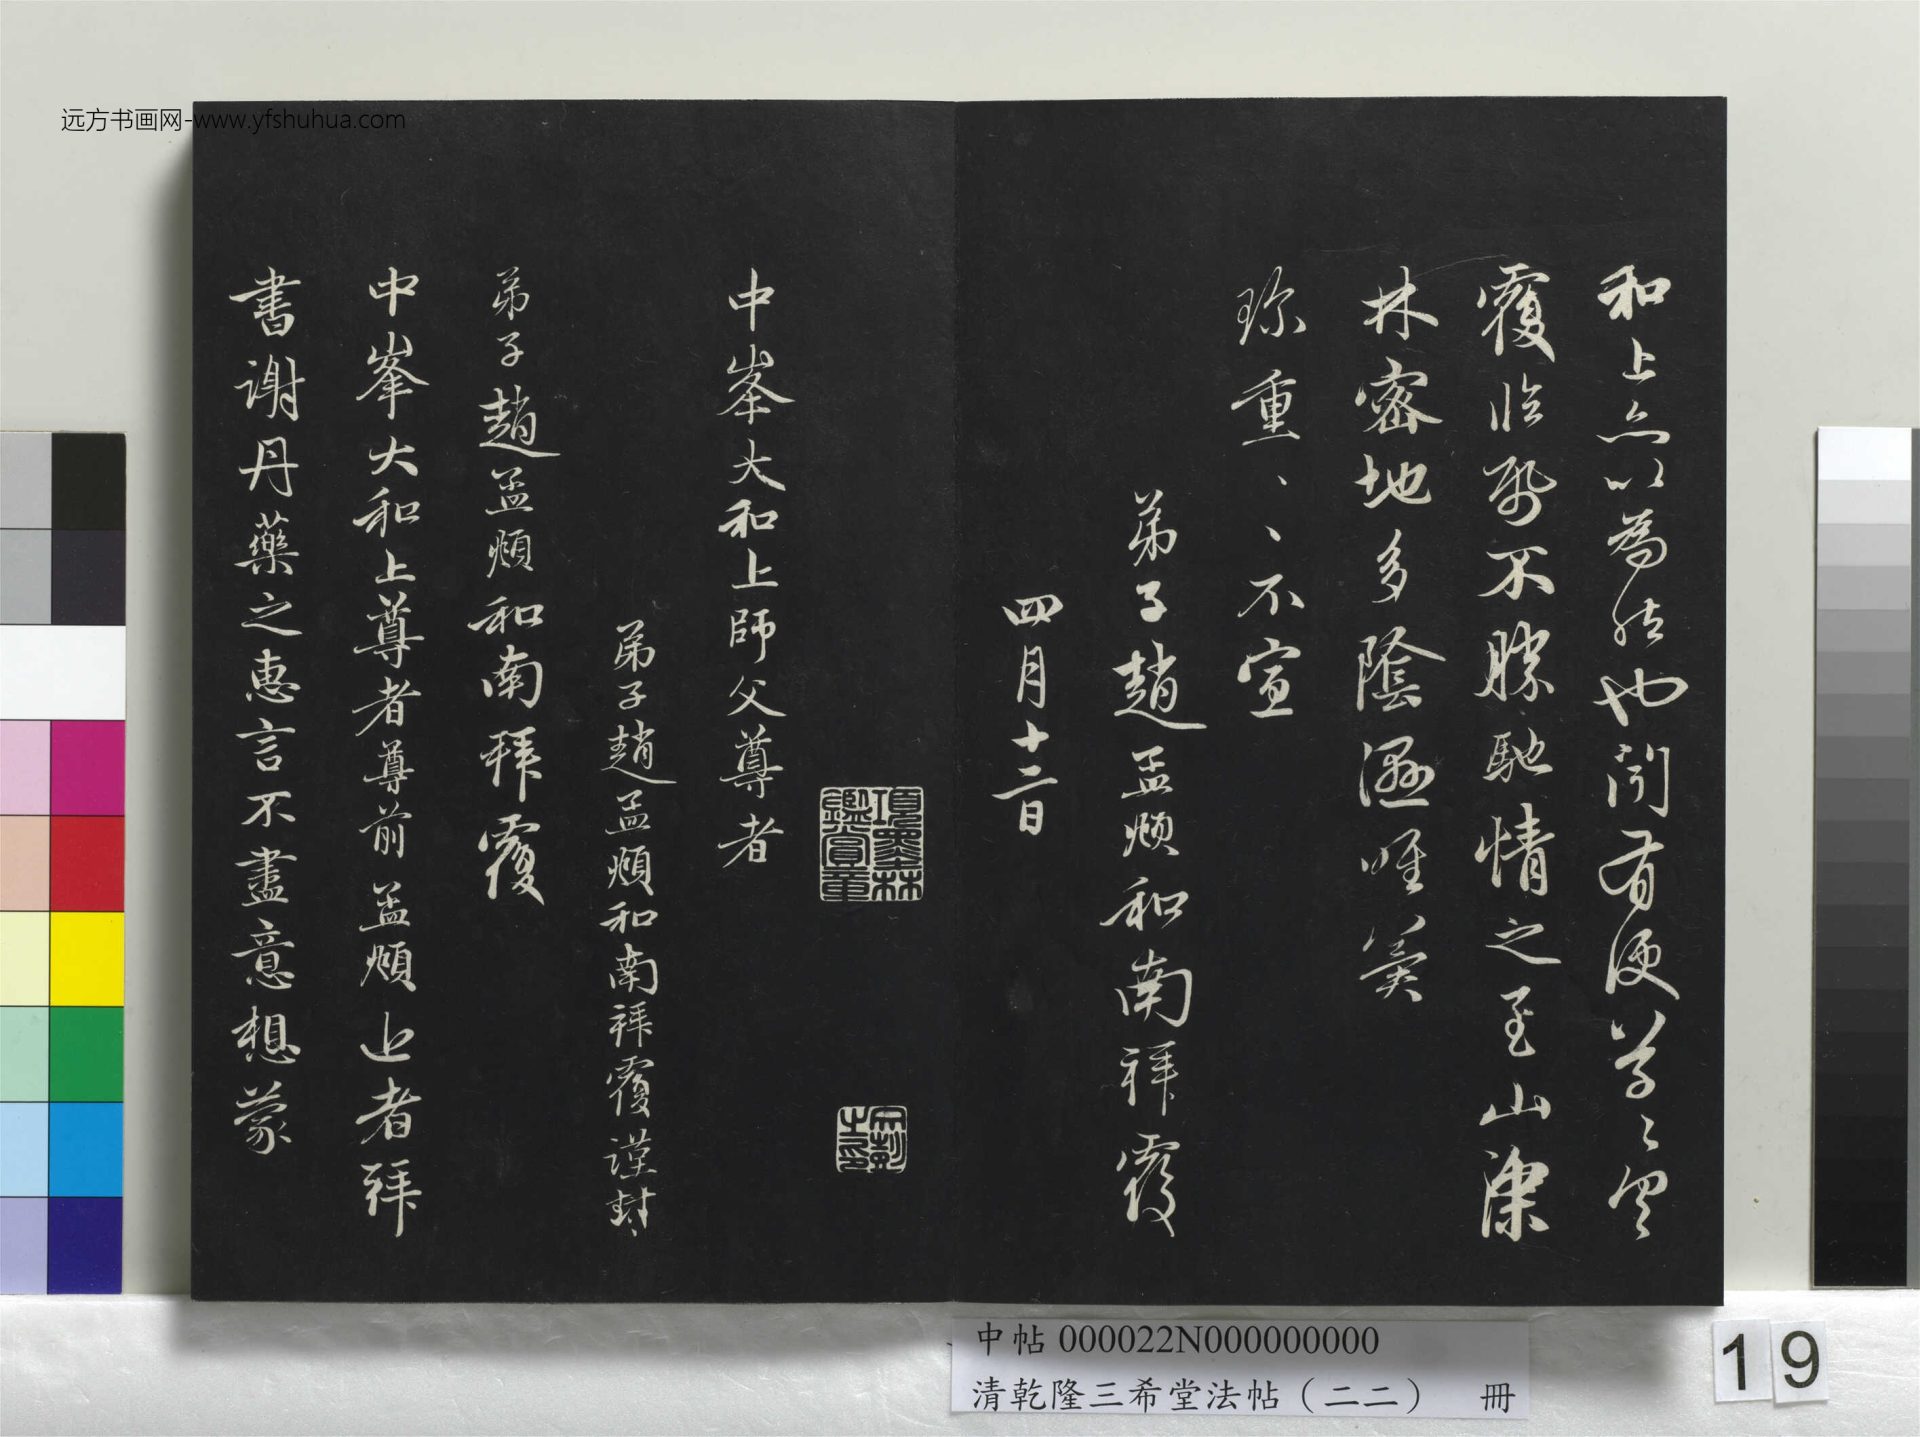 远方书画网-www.yfshuhua.com
和上亦以為然也閑有便草々具
覆臨紙不勝馳情之至山深
林密地多陰濕唯冀
珍重、、不宣
弟子趙孟頫和南拜覆
四月十二日
項墨林
鑑賞章
中峯大和上師父尊者
弟子趙孟頫和南拜覆謹封
弟子趙孟頫和南拜覆
中峯大和上尊者尊前孟頫上者拜
書謝丹藥之惠言不盡意想蒙
中帖 000022N000000000
清乾隆三希堂法帖（二二） 冊
19